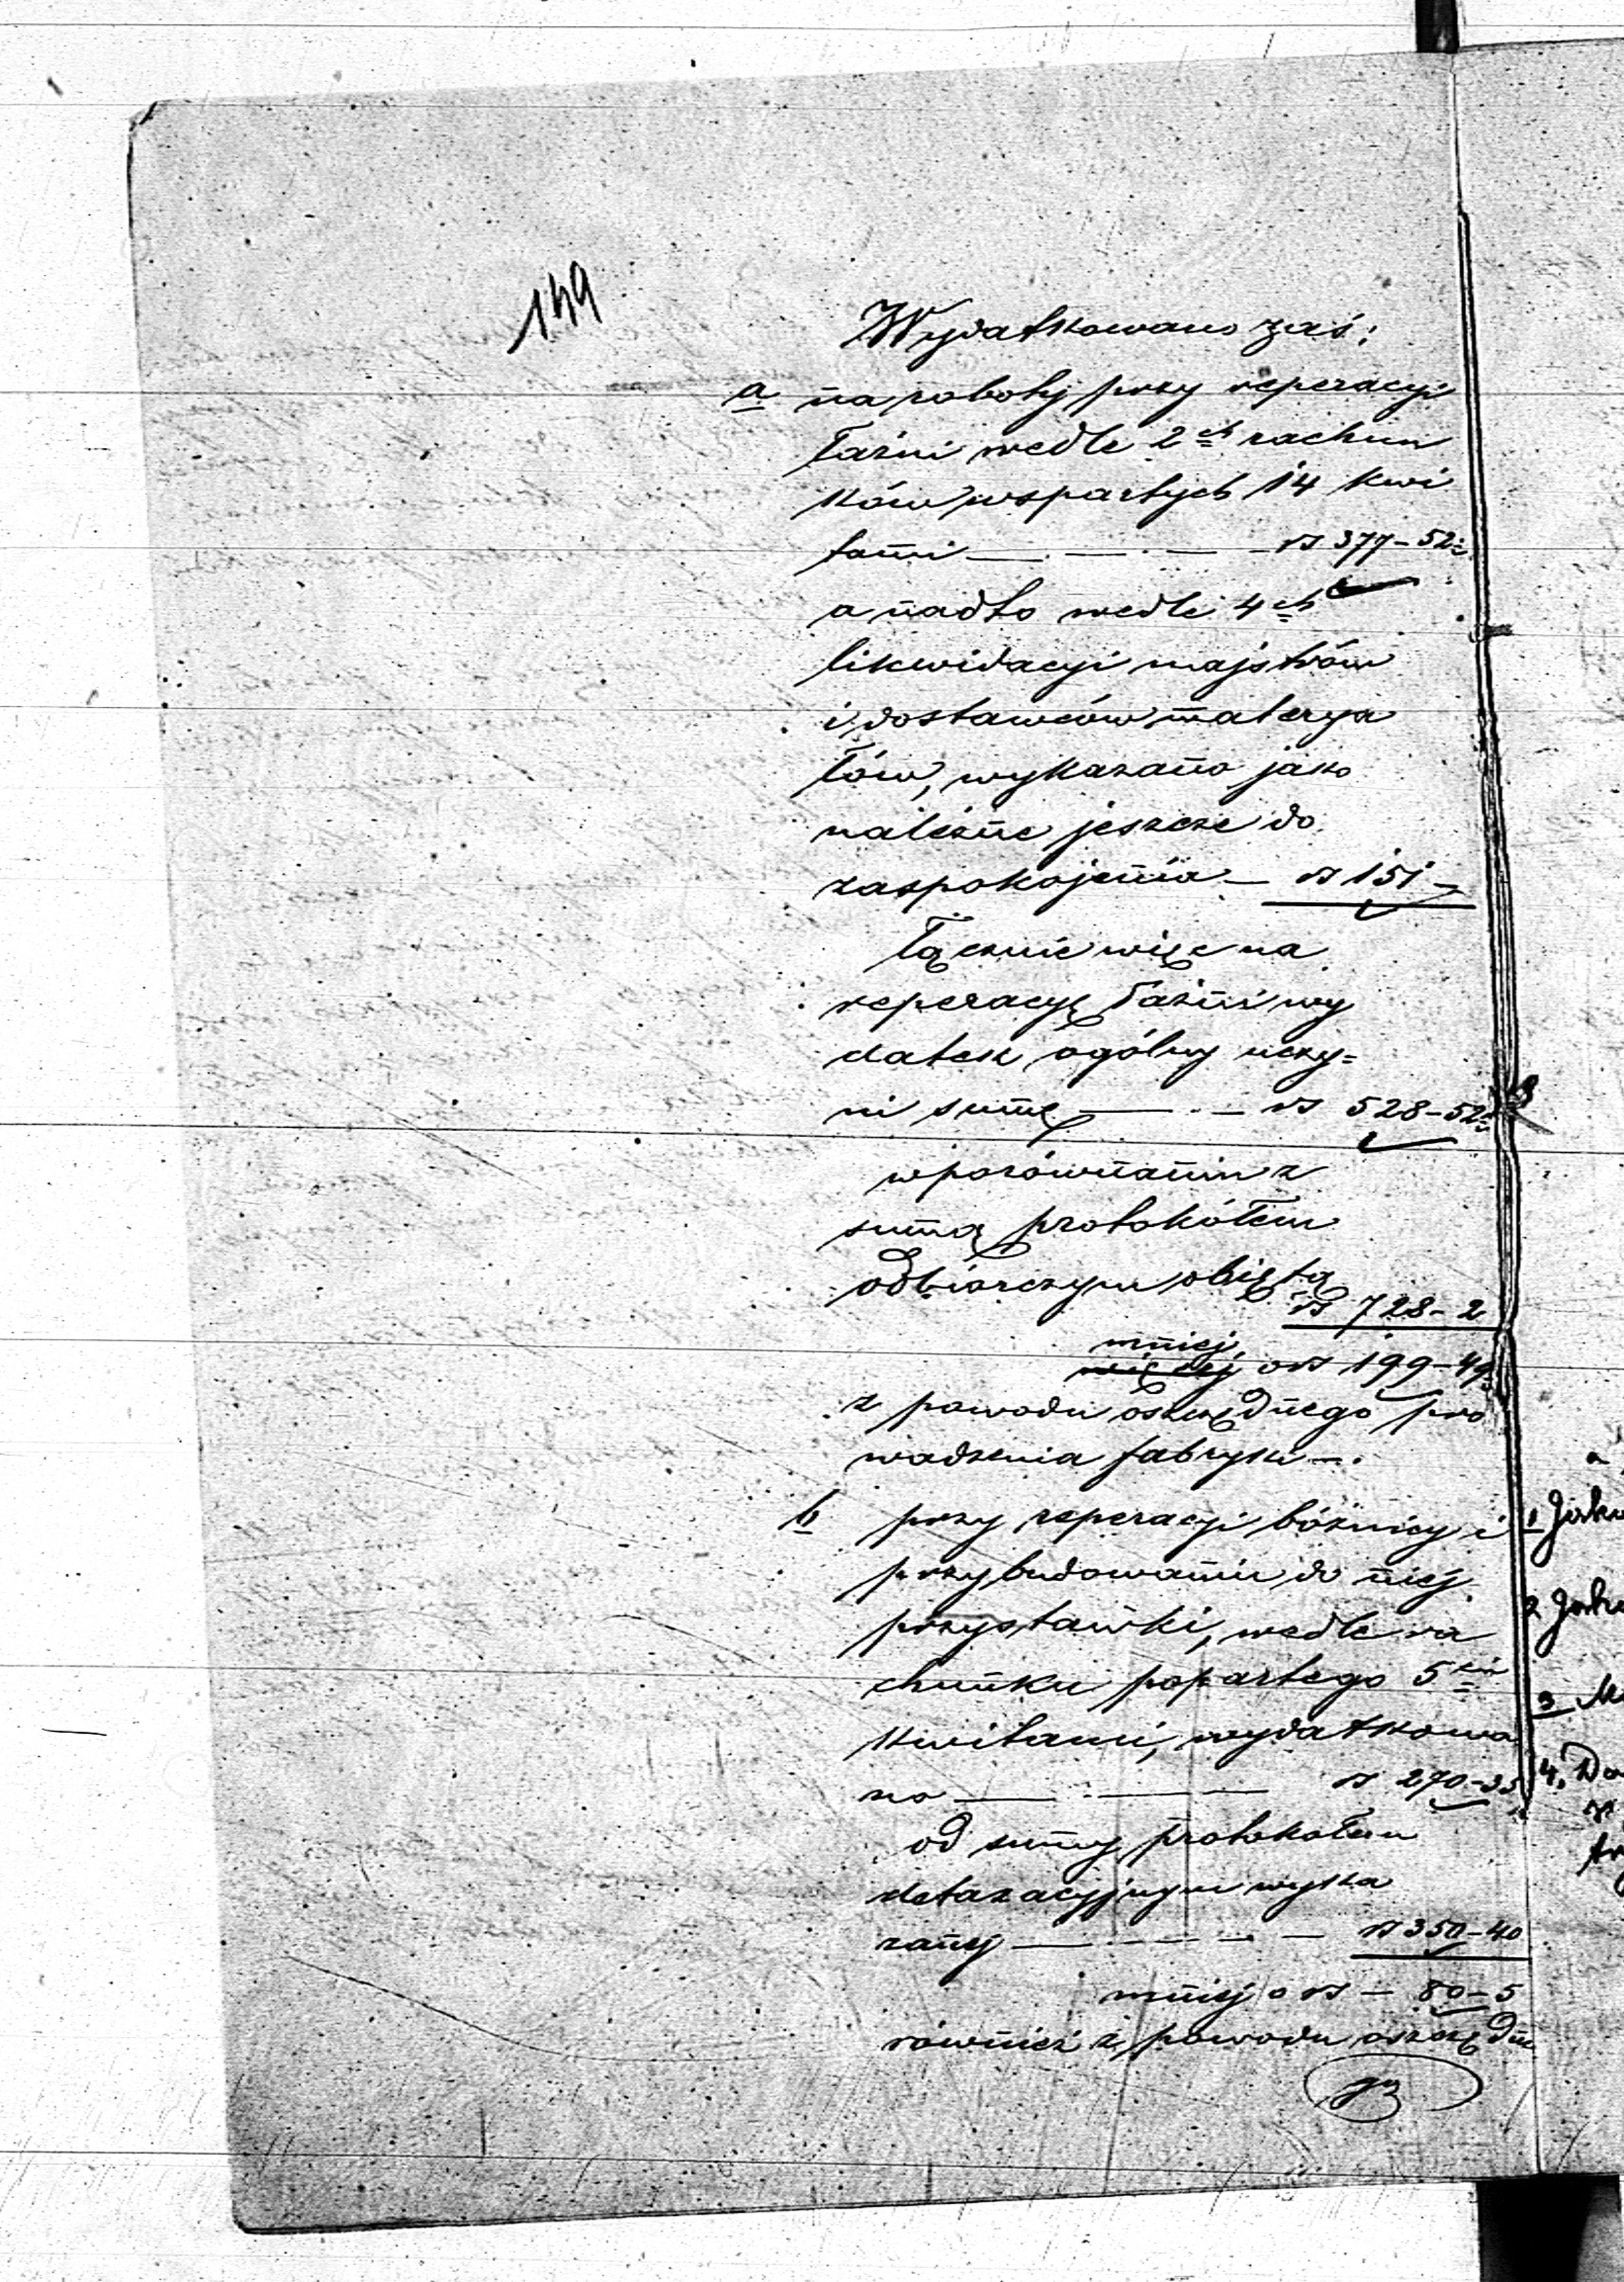 149
Wydatkowano zaś:
a na roboty przy reperacyi
łaźni wedle 2ch rachun
ków wspartych 14 kwi
tami — . — . — rs 377 - 52½
a nadto wedle 4ch
likwidacyi majstrów
i dostawców materya
łów, wykazano jako
należne jeszcze do
zaspokojenia — rs 151 -
Łącznie więc na
reperacyę łaźni wy
datek ogólny uczy=
ni sumę — . — rs 528 - 52½
w porównaniu z
sumą protokółem
odbiorczym objętą
rs 728 - 2
mniej
więcej o rs 199 - 49½
z powodu oszczędnego pro
wadzenia fabryki - .
b przy reperacyi bóżnicy i
przybudowaniu do niej
przystawki, wedle ra
chunku popartego 5ciu
kwitami, wydatkowa
no — . — rs 270 - 35
od sumy protokołem
detaxacyjnym wyka
zanej — . — rs 350 - 40
mniej o rs - 80 - 5
również z powodu oszczędn
1
2
3
4,